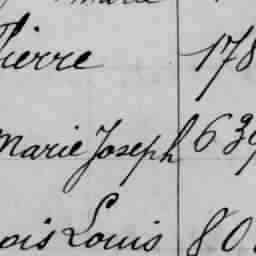 Pierre 178
Marie Joseph 639
ois Louis 80